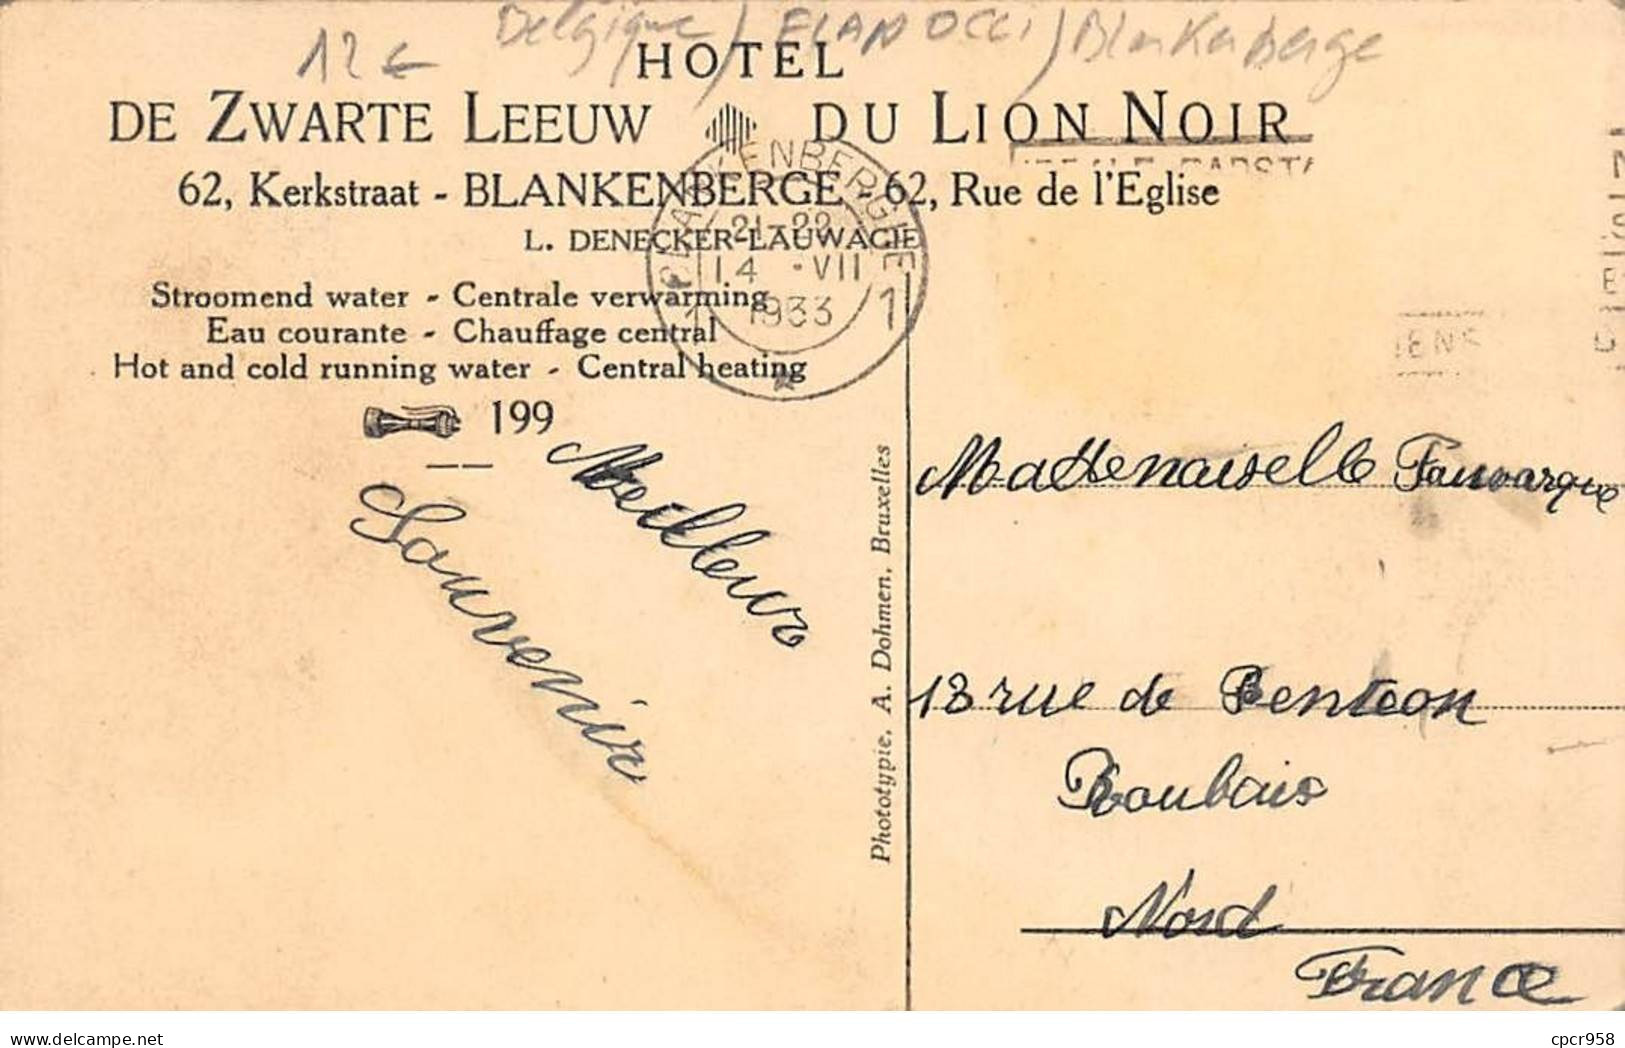 12€
Belgique / FLAN OCCI / Blankenberge
HOTEL
DE ZWARTE LEEUW DU LION NOIR
62, Kerkstraat - BLANKENBERGE - 62, Rue de l'Eglise
L. DENECKER-LAUWAGIE
Stroomend water - Centrale verwarming
Eau courante - Chauffage central
Hot and cold running water - Central heating
199
BLANKENBERGHE
21-22
14 -VII
1933
1 1
Meilleur
Souvenir
Phototypie. A. Dohmen. Bruxelles
Mademoiselle Fauvarque
13 rue de
Roubaix
Nord
France
delcampe.net
cpcr958